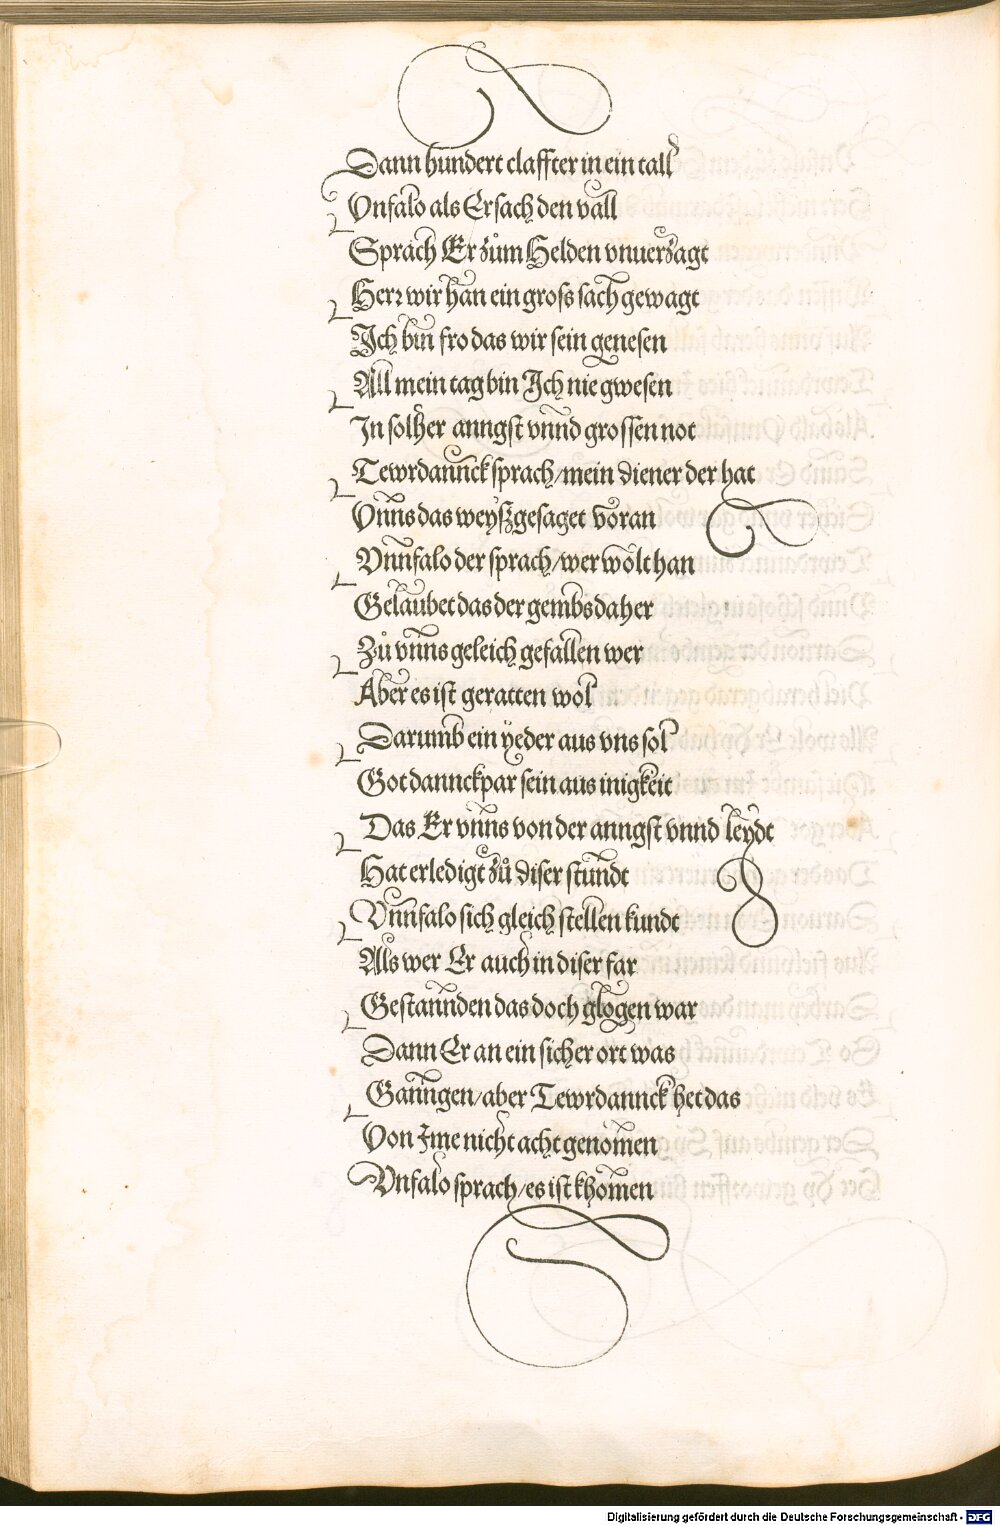 Dann hundert claffter in ein tall
Vnfalo als Er sach den vall
Sprach Er zům Helden vnuerzagt
Herr wir han ein gross sach gewagt
Ich bin fro das wir sein genesen
All mein tag bin Ich nie gwesen
In solher anngst vnnd grossen not
Tewrdannck sprach/mein diener der hat
Vnns das weyß gesaget voran
Vnnfalo der sprach/wer wolt han
Gelaubet das der gembs daher
Zů vnns geleich gefallen wer
Aber es ist geratten wol
Darumb ein yeder aus vns sol
Got dannckpar sein aus inigkeit
Das Er vnns von der anngst vnnd leydt
Hat erledigt zů diser stundt
Vnnfalo sich gleich stellen kundt
Als wer Er auch in diser far
Gestannden das doch glogen war
Dann Er an ein sicher ort was
Ganngen/aber Tewrdannck het das
Von Ime nicht acht genomen
Vnfalo sprach/es ist khomen
Digitalisierung gefördert durch die Deutsche Forschungsgemeinschaft - DFG